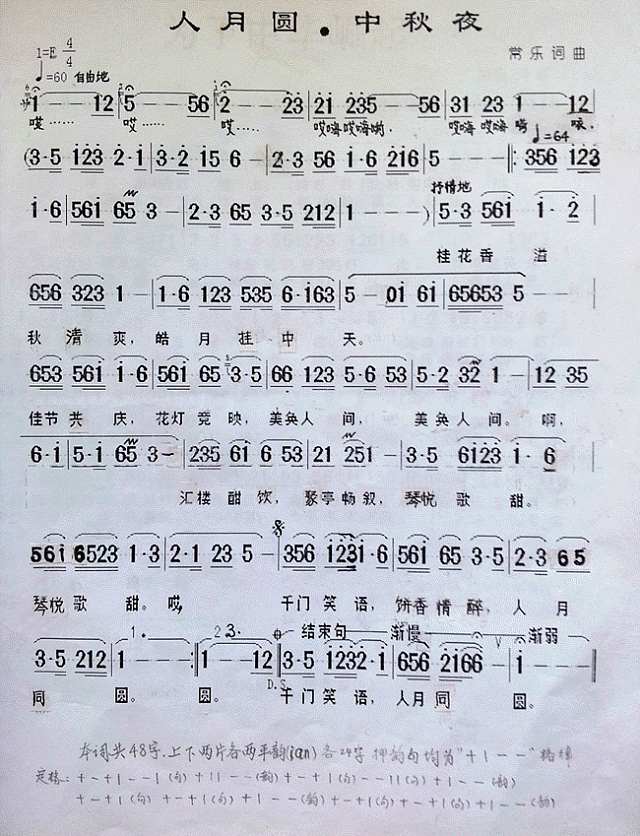 人月圆·中秋夜
1=E 4/4
♩=60 自由地
常乐词曲
1 - - 12 | 5 - - 56 | 2 - - 23 | 21 235 - 56 | 31 23 1 - 12
哎…… 哎…… 哎…… 哎嗨哎嗨哟, 哎嗨哎嗨
♩=64
(3·5 123 2·1 | 3·2 15 6 - | 2·3 56 1·6 216 | 5 - - - ‖: 356 123
抒情地
1·6 | 561 65 3 - | 2·3 65 3·5 212 | 1 - - - ) | 5·3 561 1·2
桂花香溢
656 323 1 - | 1·6 123 535 6·163 | 5 - 01 61 | 65653 5 -
秋清爽,皓月挂中天。
653 561 1·6 | 561 65 3·5 | 66 123 5·6 53 | 5·2 32 1 - | 12 35
佳节共庆,花灯竞映,美奂人间,美奂人间。啊,
6·1 | 5·1 65 3 - | 235 61 6 53 | 21 251 - | 3·5 6123 1·6
汇楼酣饮,聚亭畅叙,琴悦歌甜。
561 6523 1·3 | 2·1 23 5 - | 356 1231·6 | 561 65 3·5 | 2·3 65
琴悦歌甜。哎,千门笑语,饼香情醉,人月
1. 2.3. 结束句 渐慢 渐弱
3·5 212 | 1 - - - :‖ 1 - - 12 ‖ 3·5 1232·1 | 656 2166 - | 1 - - - ‖
D.S.
同圆。圆。千门笑语,人月同圆。
本词共48字,上下两片各两平韵(ian)各24字 押韵句均为"+|--"格律
定格:+-+|--|(句) +||--(韵) +-+|(句) +|--||(句) +|--(韵)
+-+|(句) +-+|(句) +|--(韵) +-+|(句) +-+|(句) +|--(韵)